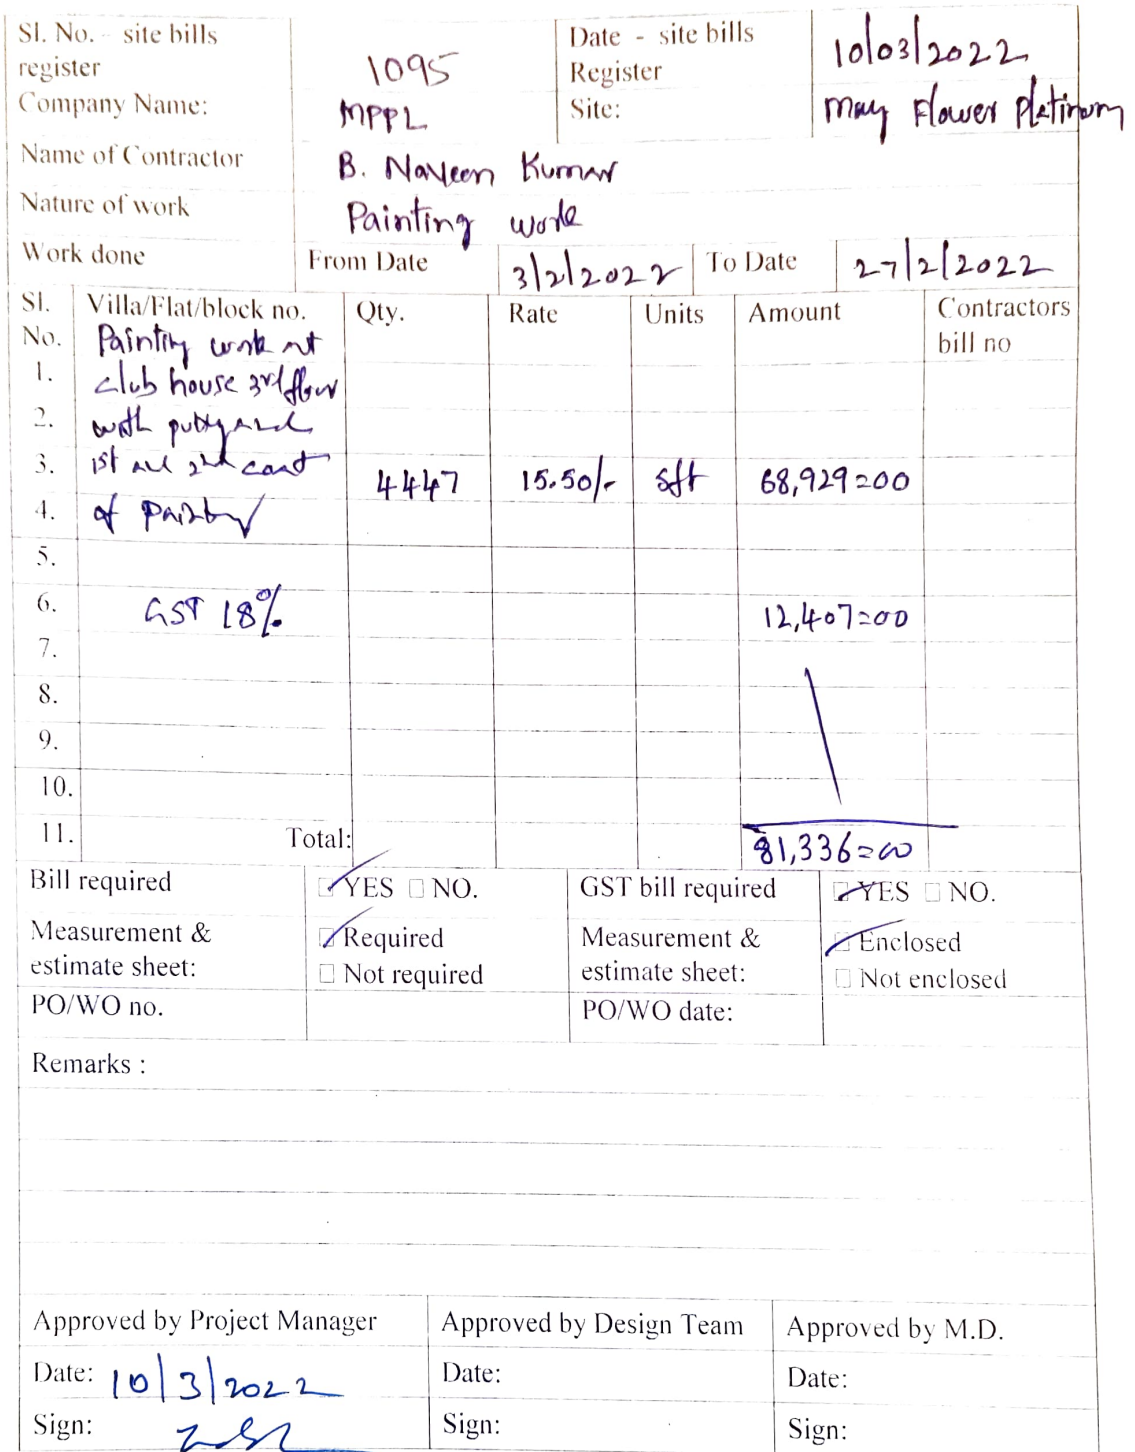 Sl. No. - site bills register 1095 Date - site bills Register 10/03/2022
Company Name: MPPL Site: May Flower Platinum
Name of Contractor B. Naveen Kumar
Nature of work Painting work
Work done From Date 3/2/2022 To Date 27/2/2022
Sl. No. Villa/Flat/block no. Qty. Rate Units Amount Contractors bill no
Painting work at
1. club house 3rd floor
2. with putty and
3. 1st and 2nd coat 4447 15.50/- sft 68,929=00
4. of Painting
5.
6. GST 18% 12,407=00
7.
8.
9.
10.
11. Total: 81,336=00
Bill required YES NO. GST bill required YES NO.
Measurement & estimate sheet: Required Not required Measurement & estimate sheet: Enclosed Not enclosed
PO/WO no. PO/WO date:
Remarks :
Approved by Project Manager Approved by Design Team Approved by M.D.
Date: 10/3/2022 Date: Date:
Sign: Sign: Sign: